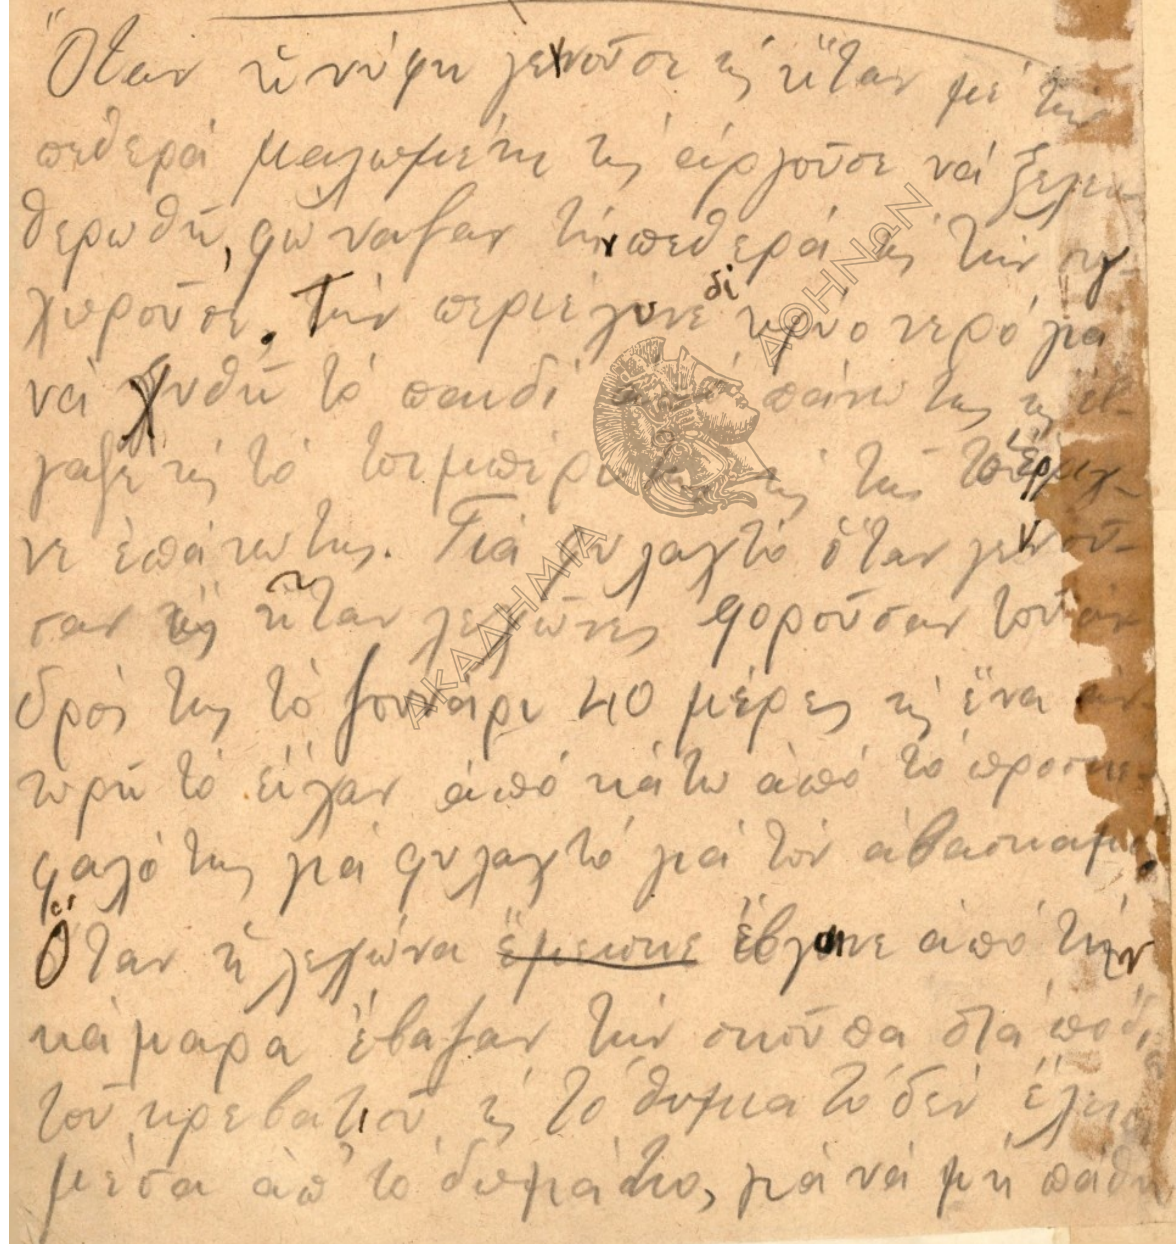 Ὅταν ἡ νύφη γεννοῦσε κ̀ ἤταν μὲ τὴν
πεθερά μαλωμένη κ̀ ἀργοῦσε νά ξελευ-
θερωθῆ, φώναζαν τὴν πεθερά κ̀ τὴν συγ-
χωροῦσε. Τὴν περιέχυνε δὶ κρύο νερό γιὰ
νά χυθῆ τὸ παιδί ἀπό πάνω της κ̀ ἔβ-
γαζε κ̀ τὸ τσιμπέρι της κ̀ τῆς τὄρριχ-
νε ἐπάνω της. Γιὰ φυλαχτὸ ὅταν γεννοῦ-
σαν κ̀ ἤταν λεχῶνες φοροῦσαν τοῦ ἀν-
δρός της τὸ ζουνάρι 40 μέρες κ̀ ἕνα
τυρὶ τὸ εἶχαν ἀπό κάτω ἀπό τὸ προσκέ-
φαλό της γιά φυλαχτὸ γιά τὸν ἀβασκαμό.
Ὅταν ἡ λεχώνα ἔμεισκε ἔβγαινε ἀπὸ τὴν
κάμαρα ἔβαζαν τὴν σκοῦπα στὰ πόδι
τοῦ κρεβατιοῦ κ̀ τὸ θυμιατὸ δέν ἔλειπε
μέσα ἀπ' τὸ δωμάτιο, γιά νά μὴ πάθη